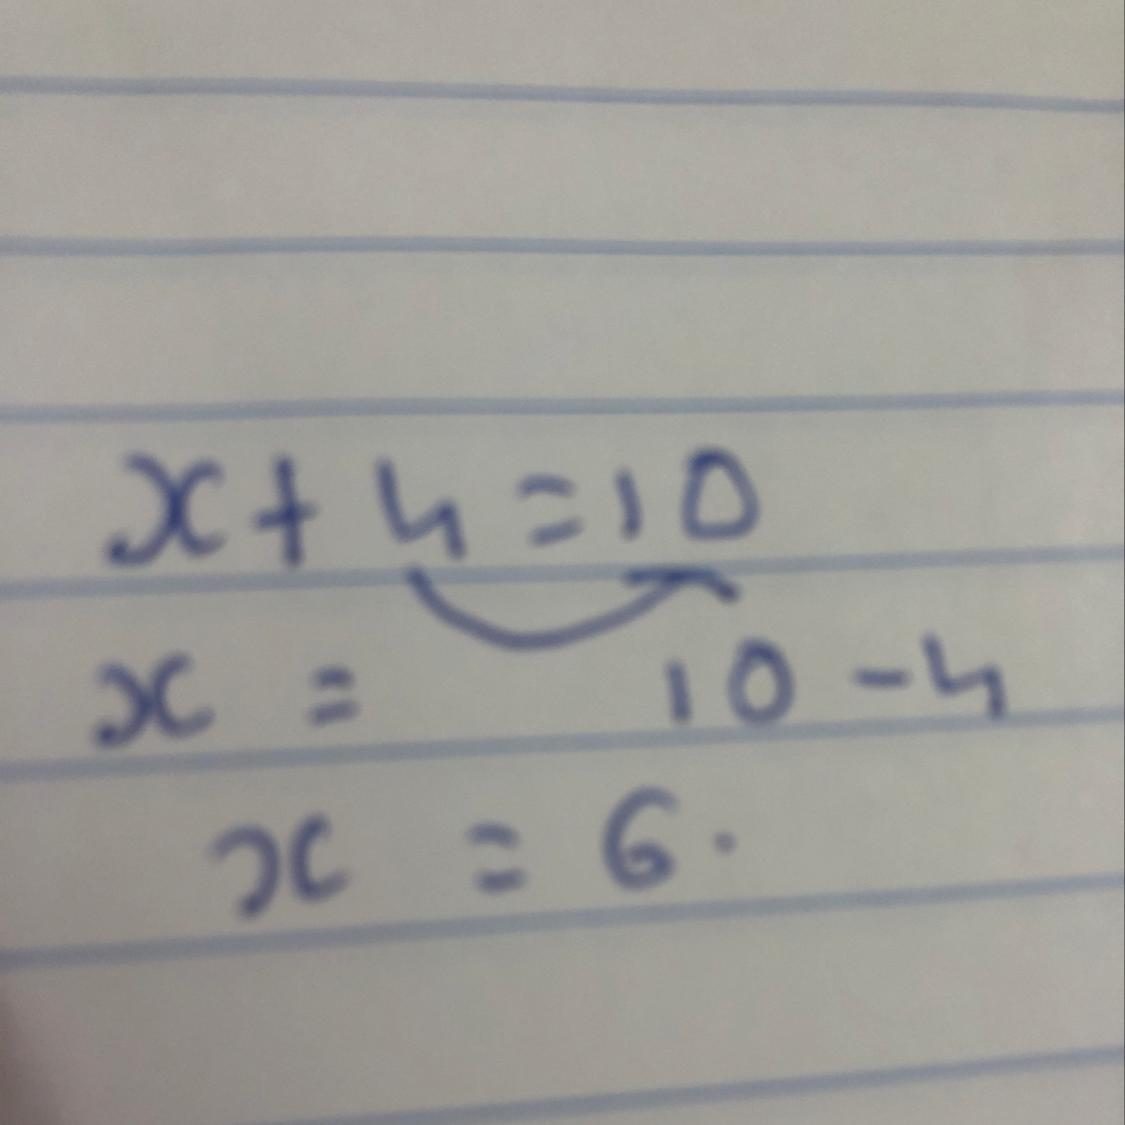 x + 4 = 10
x = 10 - 4
x = 6.